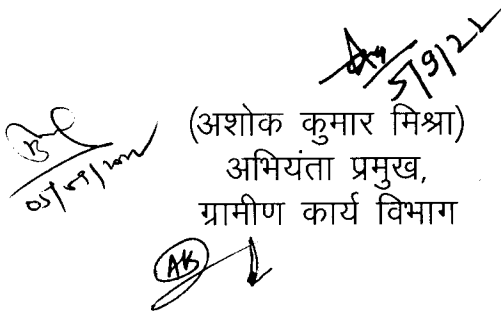 5/9/22
(अशोक कुमार मिश्रा)
अभियंता प्रमुख,
ग्रामीण कार्य विभाग
AK